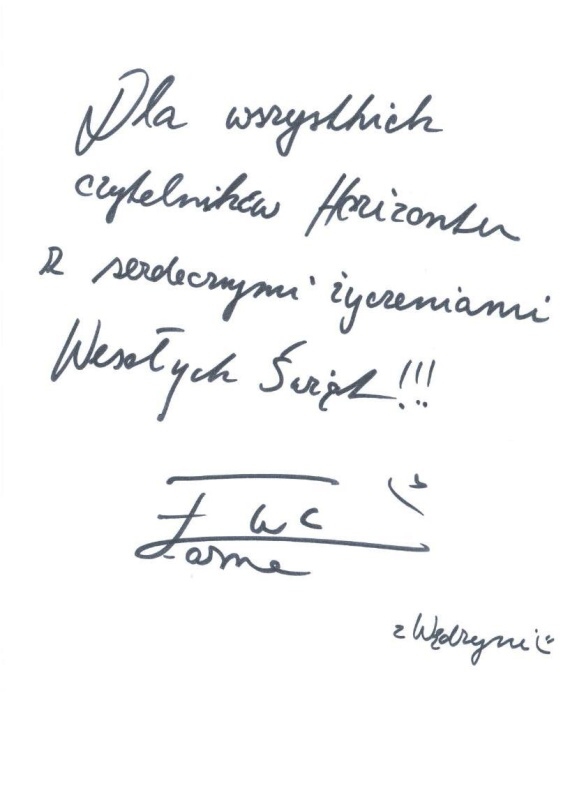 Dla wszystkich
czytelników Horizontu
z serdecznymi życzeniami
Wesołych Świąt!!!
z Wędryni